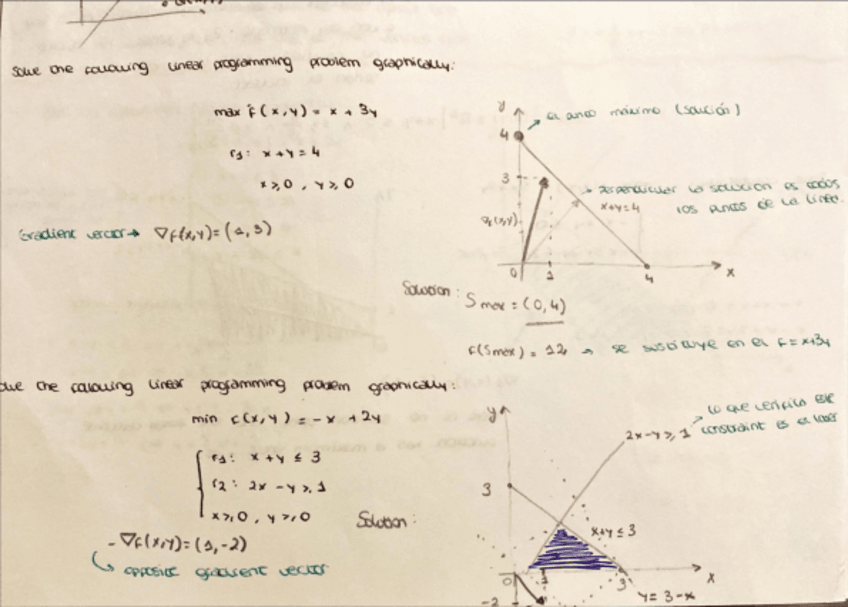 Solve the following linear programming problem graphically:
max f(x,y) = x + 3y
r1: x+y = 4
x ≥ 0 , y ≥ 0
Gradient vector → ∇f(x,y) = (1, 3)
y
4
El punto máximo (solución)
3
∇f(x,y)
perpendicular la solución es todos
los puntos de la línea.
x+y=4
0
1
4
x
Solution: Smax = (0,4)
f(Smax) = 12 → se sustituye en el f = x+3y
olve the following linear programming problem graphically:
min f(x,y) = -x + 2y
r1: x + y ≤ 3
r2: 2x - y ≥ 1
x ≥ 0 , y ≥ 0
Solution:
-∇f(x,y) = (1,-2)
opposite gradient vector
y
lo que verifica
constraint es el
2x-y ≥ 1
3
x+y ≤ 3
0
1
3
x
y = 3-x
-2